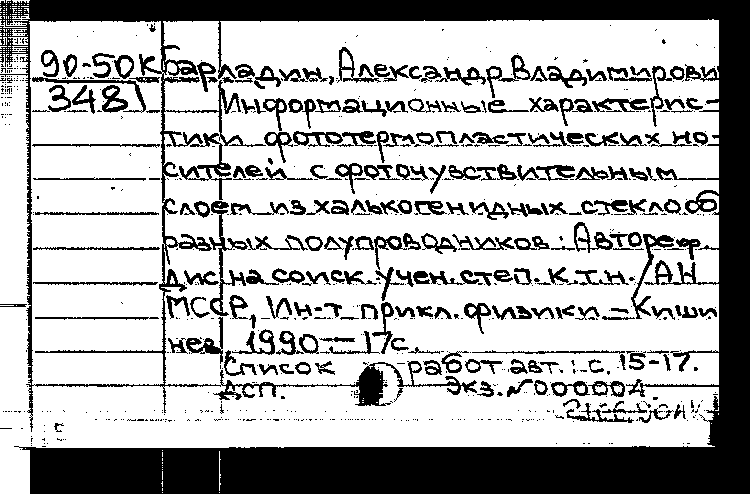 90-50К Барладин, Александр Владимирови
3481 Информационные характерис-
тики фототермопластических но-
сителей с фоточувствительным
слоем из халькогенидных стеклооб
разных полупроводников: Автореф.
дис на соиск. учен. степ. к.т.н. / АН
МССР, Ин-т прикл. физики. – Киши
нев, 1990. – 17с.
Список работ авт.: с. 15-17.
ДСП. Экз. №000004.